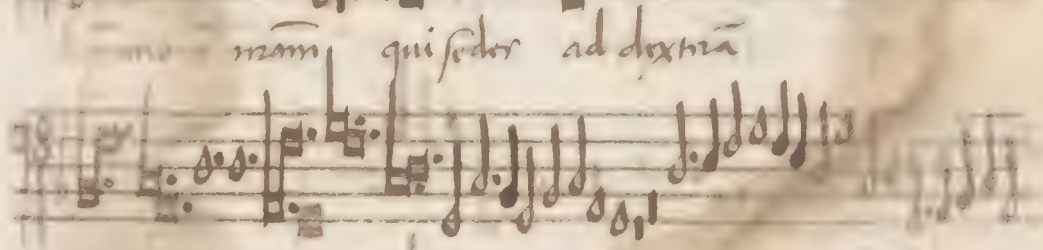 nram qui sedes ad dextrā